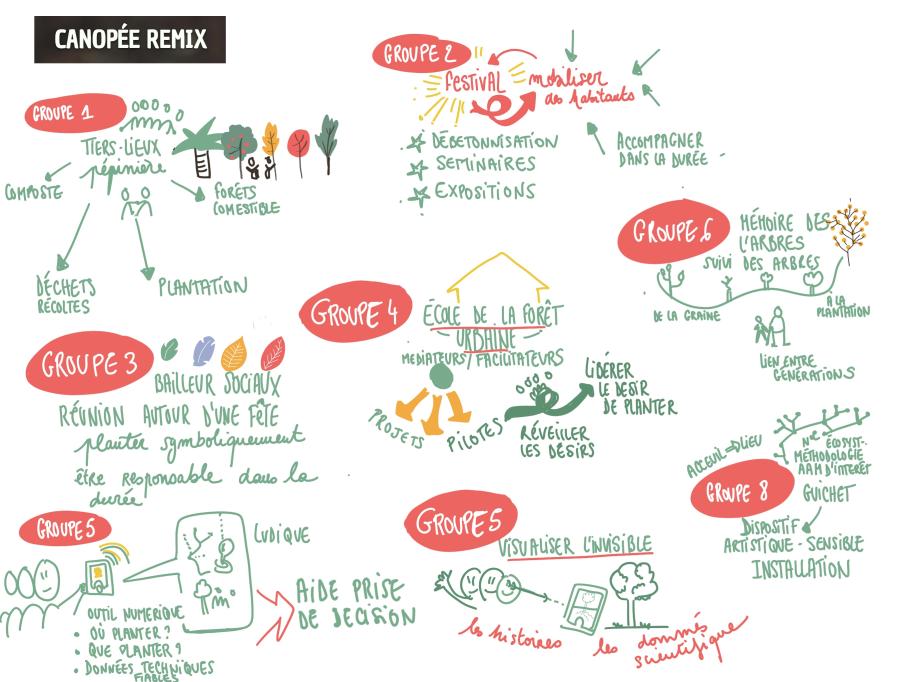 CANOPÉE REMIX
GROUPE 1
TIERS-LIEUX
pépinière
COMPOSTE
FORÊTS
COMESTIBLE
DÉCHETS
RÉCOLTES
PLANTATION
GROUPE 2
FESTIVAL
mobiliser
des habitants
DÉBETONNISATION
SEMINAIRES
EXPOSITIONS
ACCOMPAGNER
DANS LA DURÉE
GROUPE 6
MÉMOIRE DES
L'ARBRES
SUIVI DES ARBRES
DE LA GRAINE
À LA
PLANTATION
LIEN ENTRE
GÉNÉRATIONS
GROUPE 3
BAILLEUR SOCIAUX
RÉUNION AUTOUR D'UNE FÊTE
planter symboliquement
être responsable dans la
durée
GROUPE 4
ÉCOLE DE LA FORÊT
URBAINE
MEDIATEURS/FACILITATEURS
PROJETS
PILOTES
RÉVEILLER
LES DÉSIRS
LIBÉRER
LE DESIR
DE PLANTER
GROUPE 5
LUDIQUE
OUTIL NUMERIQUE
• OÙ PLANTER ?
• QUE PLANTER ?
• DONNÉES TECHNIQUES
FIABLES
AIDE PRISE
DE DECISION
GROUPE 5
VISUALISER L'INVISIBLE
les histoires
les dommés
scientifique
ACCEUIL => LIEU
ÉCOSYST-
MÉTHODOLOGIE
AAM D'INTERÊT
GROUPE 8
GUICHET
DISPOSITIF
ARTISTIQUE - SENSIBLE
INSTALLATION